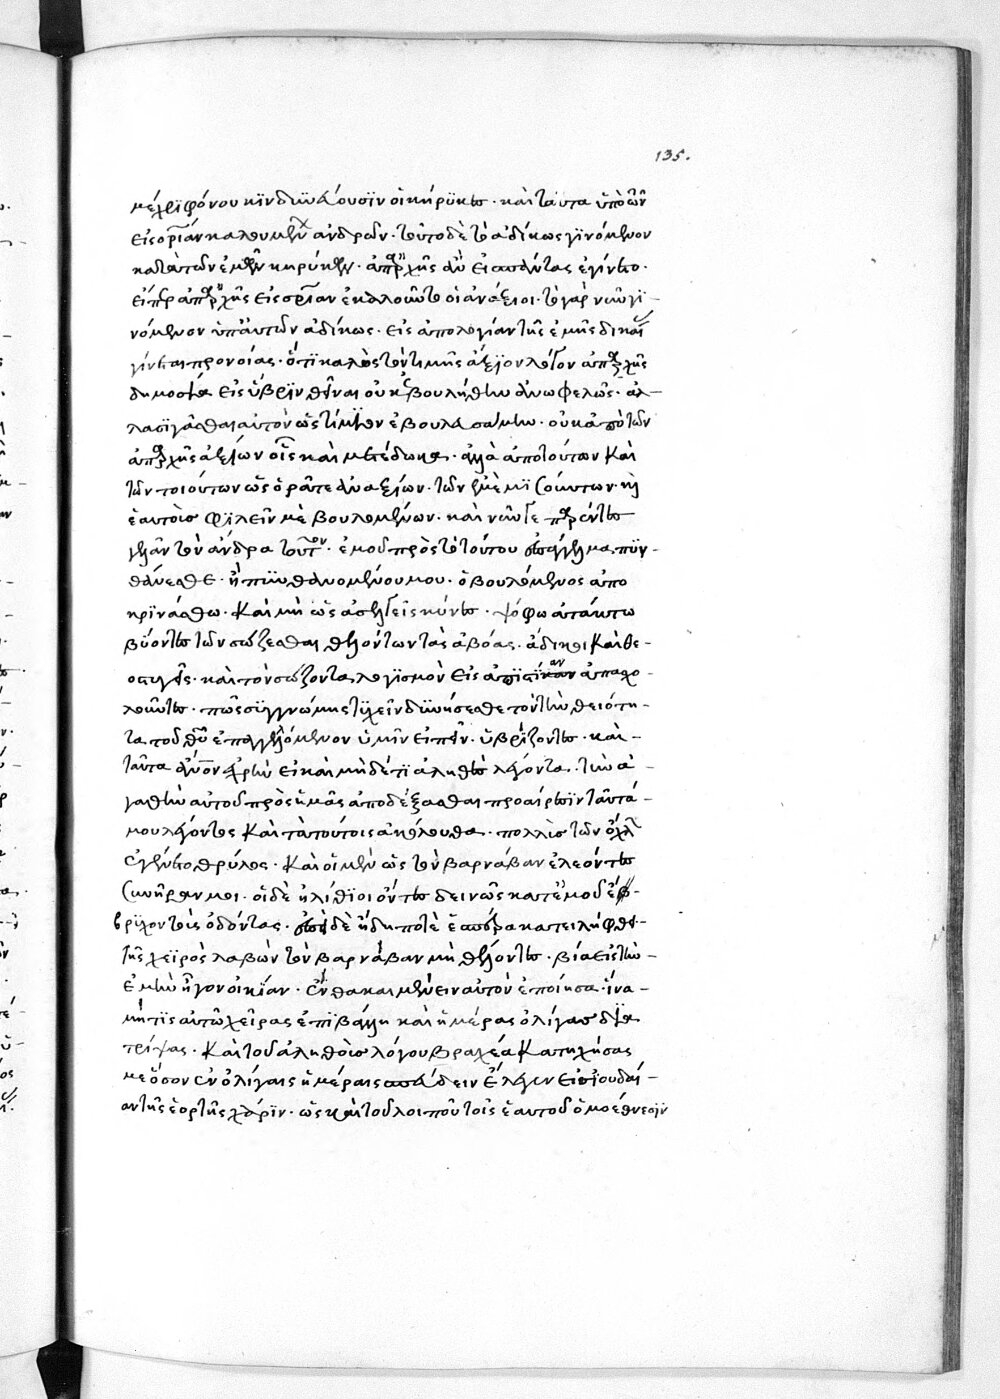 135.
μέχρι φόνου κινδυνεύουσιν οἱ κήρυκες · καὶ ταῦτα ὑπὸ τῶν
εἰς ὁρίαν καλουμένων ἀνδρῶν · τοῦτο δὲ τὸ ἀδίκως γινόμενον
κατὰ τῶν ἐμῶν κηρύκων · ἀπαρχῆς ἂν εἰς πάντας ἐγίνετο ·
εἴπερ ἀπαρχῆς εἰς ἐκαλοῦντο οἱ ἀνάξιοι · τὸ γὰρ νῦν γι-
νόμενον ὑπ' αὐτῶν ἀδίκως · εἰς ἀπολογίαν τῆς ἐμῆς δικαί
γίνεται προνοίας · ὅτι καλῶς τὸν τιμῆς ἄξιον λόγον ἀπαρχῆς
δημοσίᾳ εἰς ὕβριν θεῖναι οὐκ ἐβουλήθην ἀνωφελῶς · ἀλ-
λὰ σιγᾶσθαι αὐτὸν ὡς τίμιον ἐβουλευσάμην · οὐκ ἀπὸ τῶν
ἀπαρχῆς ἀξίων οἷς καὶ μετέδωκα · ἀλλὰ ἀπὸ τούτων καὶ
τῶν τοιούτων ὡς ὁρᾶτε ἀναξίων · τῶν ἐμὲ μισούντων · κ
ἑαυτοὺς φιλεῖν μὲ βουλομένων · καὶ νῦν γε παρέντες
γελᾶν τὸν ἄνδρα τοῦτον · ἐμοῦ πρὸς τὸ τούτου ἐπάγγελμα πυν-
θάνεσθε · ἢ πυνθανομένου μου · ὁ βουλόμενος ἀπο
κρινάσθω · καὶ μὴ ὡς ἀσελγεῖς κύνες · ψόφῳ ἀτάκτῳ
βύοντες τῶν σώζεσθαι θελόντων τὰς ἀκοάς · ἄδικοι καὶ θε-
οστυγεῖς · καὶ τὸν σώζοντα λογισμὸν εἰς ἀπιστίαν ἀπασχο-
λοῦντες · πῶς συγγνώμης τυχεῖν δυνήσεσθε τὸν τὴν θειότη-
τα τοῦ θεοῦ ἐπαγγελόμενον ὑμῖν εἰπεῖν · ὑβρίζοντες · καὶ -
ταῦτα ἀνδρὸν ἐχρῆν εἰ καὶ μηδέ τι ἀληθὲς λέγοντα · τὴν ἀ -
γαθὴν αὐτοῦ πρὸς ἡμᾶς ἀποδέξασθαι προαίρεσιν ταῦτά -
μου λέγοντος καὶ τὰ τούτοις ἀκόλουθα · πολλὺς τῶν ὄχλων
ἐγένετο θρύλος · καὶ οἱ μὲν ὡς τὸν βαρνάβαν ἐλεοῦντες
συνῆραν μοι · οἱ δὲ ἠλίθιοι ὄντες δεινῶς κατ' ἐμοῦ ἔ-
βριχον τοὺς ὀδόντας · ἐπεὶ δὲ ἤδη ποτὲ ἑσπέρα κατειλήφθη
τῆς χειρὸς λαβὼν τὸν βαρνάβαν μὴ θέλοντος · βίᾳ εἰς τὴν -
ἐμὴν ἦγον οἰκίαν · ἔνθα καὶ μένειν αὐτὸν ἐποίησα · ἵνα -
μή τις αὐτῷ χεῖρας ἐπιβάλλῃ καὶ ἡμέρας ὀλίγας δια
τρίψας · καὶ τοῦ ἀληθοῦς λόγου βραχέα κατηχήσας
με ὅσον ἐν ὀλίγαις ἡμέραις σπεύδειν ἔλεγεν εἰς ἰουδαί-
αν τῆς ἑορτῆς χάριν · ὡς καὶ τοῦ λοιποῦ τοῖς ἑαυτοῦ ὁμοέθνεσιν